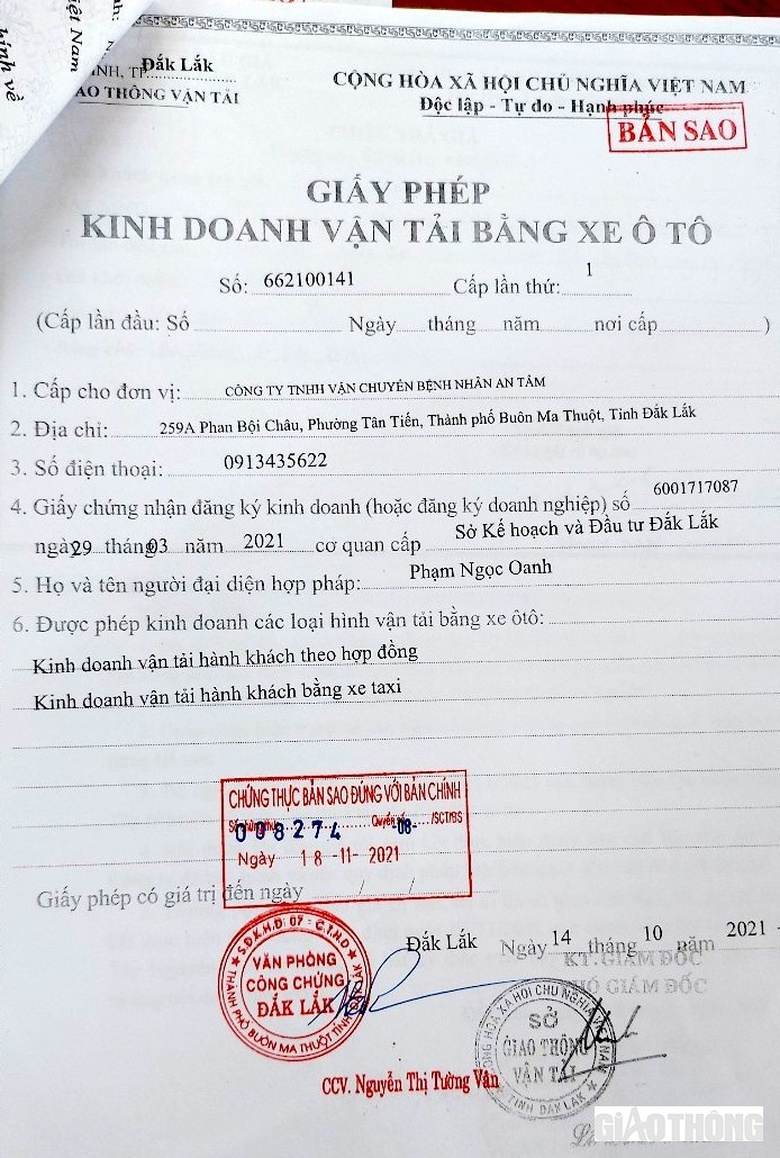 Việt Nam
hính về
ỈNH, TP Đắk Lắk
AO THÔNG VẬN TẢI
CỘNG HÒA XÃ HỘI CHỦ NGHĨA VIỆT NAM
Độc lập - Tự do - Hạnh phúc
BẢN SAO
GIẤY PHÉP
KINH DOANH VẬN TẢI BẰNG XE Ô TÔ
Số: 662100141 Cấp lần thứ: 1
(Cấp lần đầu: Số Ngày tháng năm nơi cấp )
1. Cấp cho đơn vị: CÔNG TY TNHH VẬN CHUYỂN BỆNH NHÂN AN TÂM
2. Địa chỉ: 259A Phan Bội Châu, Phường Tân Tiến, Thành phố Buôn Ma Thuột, Tỉnh Đắk Lắk
3. Số điện thoại: 0913435622
4. Giấy chứng nhận đăng ký kinh doanh (hoặc đăng ký doanh nghiệp) số 6001717087
ngày 29 tháng 03 năm 2021 cơ quan cấp Sở Kế hoạch và Đầu tư Đắk Lắk
5. Họ và tên người đại diện hợp pháp: Phạm Ngọc Oanh
6. Được phép kinh doanh các loại hình vận tải bằng xe ôtô:
Kinh doanh vận tải hành khách theo hợp đồng
Kinh doanh vận tải hành khách bằng xe taxi
CHỨNG THỰC BẢN SAO ĐÚNG VỚI BẢN CHÍNH
008274 Quyển số -08- /SCT/BS
Ngày 18-11-2021
Giấy phép có giá trị đến ngày / /
Đắk Lắk Ngày 14 tháng 10 năm 2021
KT. GIÁM ĐỐC
HÓ GIÁM ĐỐC
S.Đ.K.H.Đ: 07 - C.T.H.D
VĂN PHÒNG
CÔNG CHỨNG
ĐẮK LẮK
THÀNH PHỐ BUÔN MA THUỘT TỈNH ĐẮK LẮK
CỘNG HÒA XÃ HỘI CHỦ NGHĨA VIỆT NAM
SỞ
GIAO THÔNG
VẬN TẢI
TỈNH ĐẮK LẮK
CCV. Nguyễn Thị Tường Vân
GIAO THÔNG